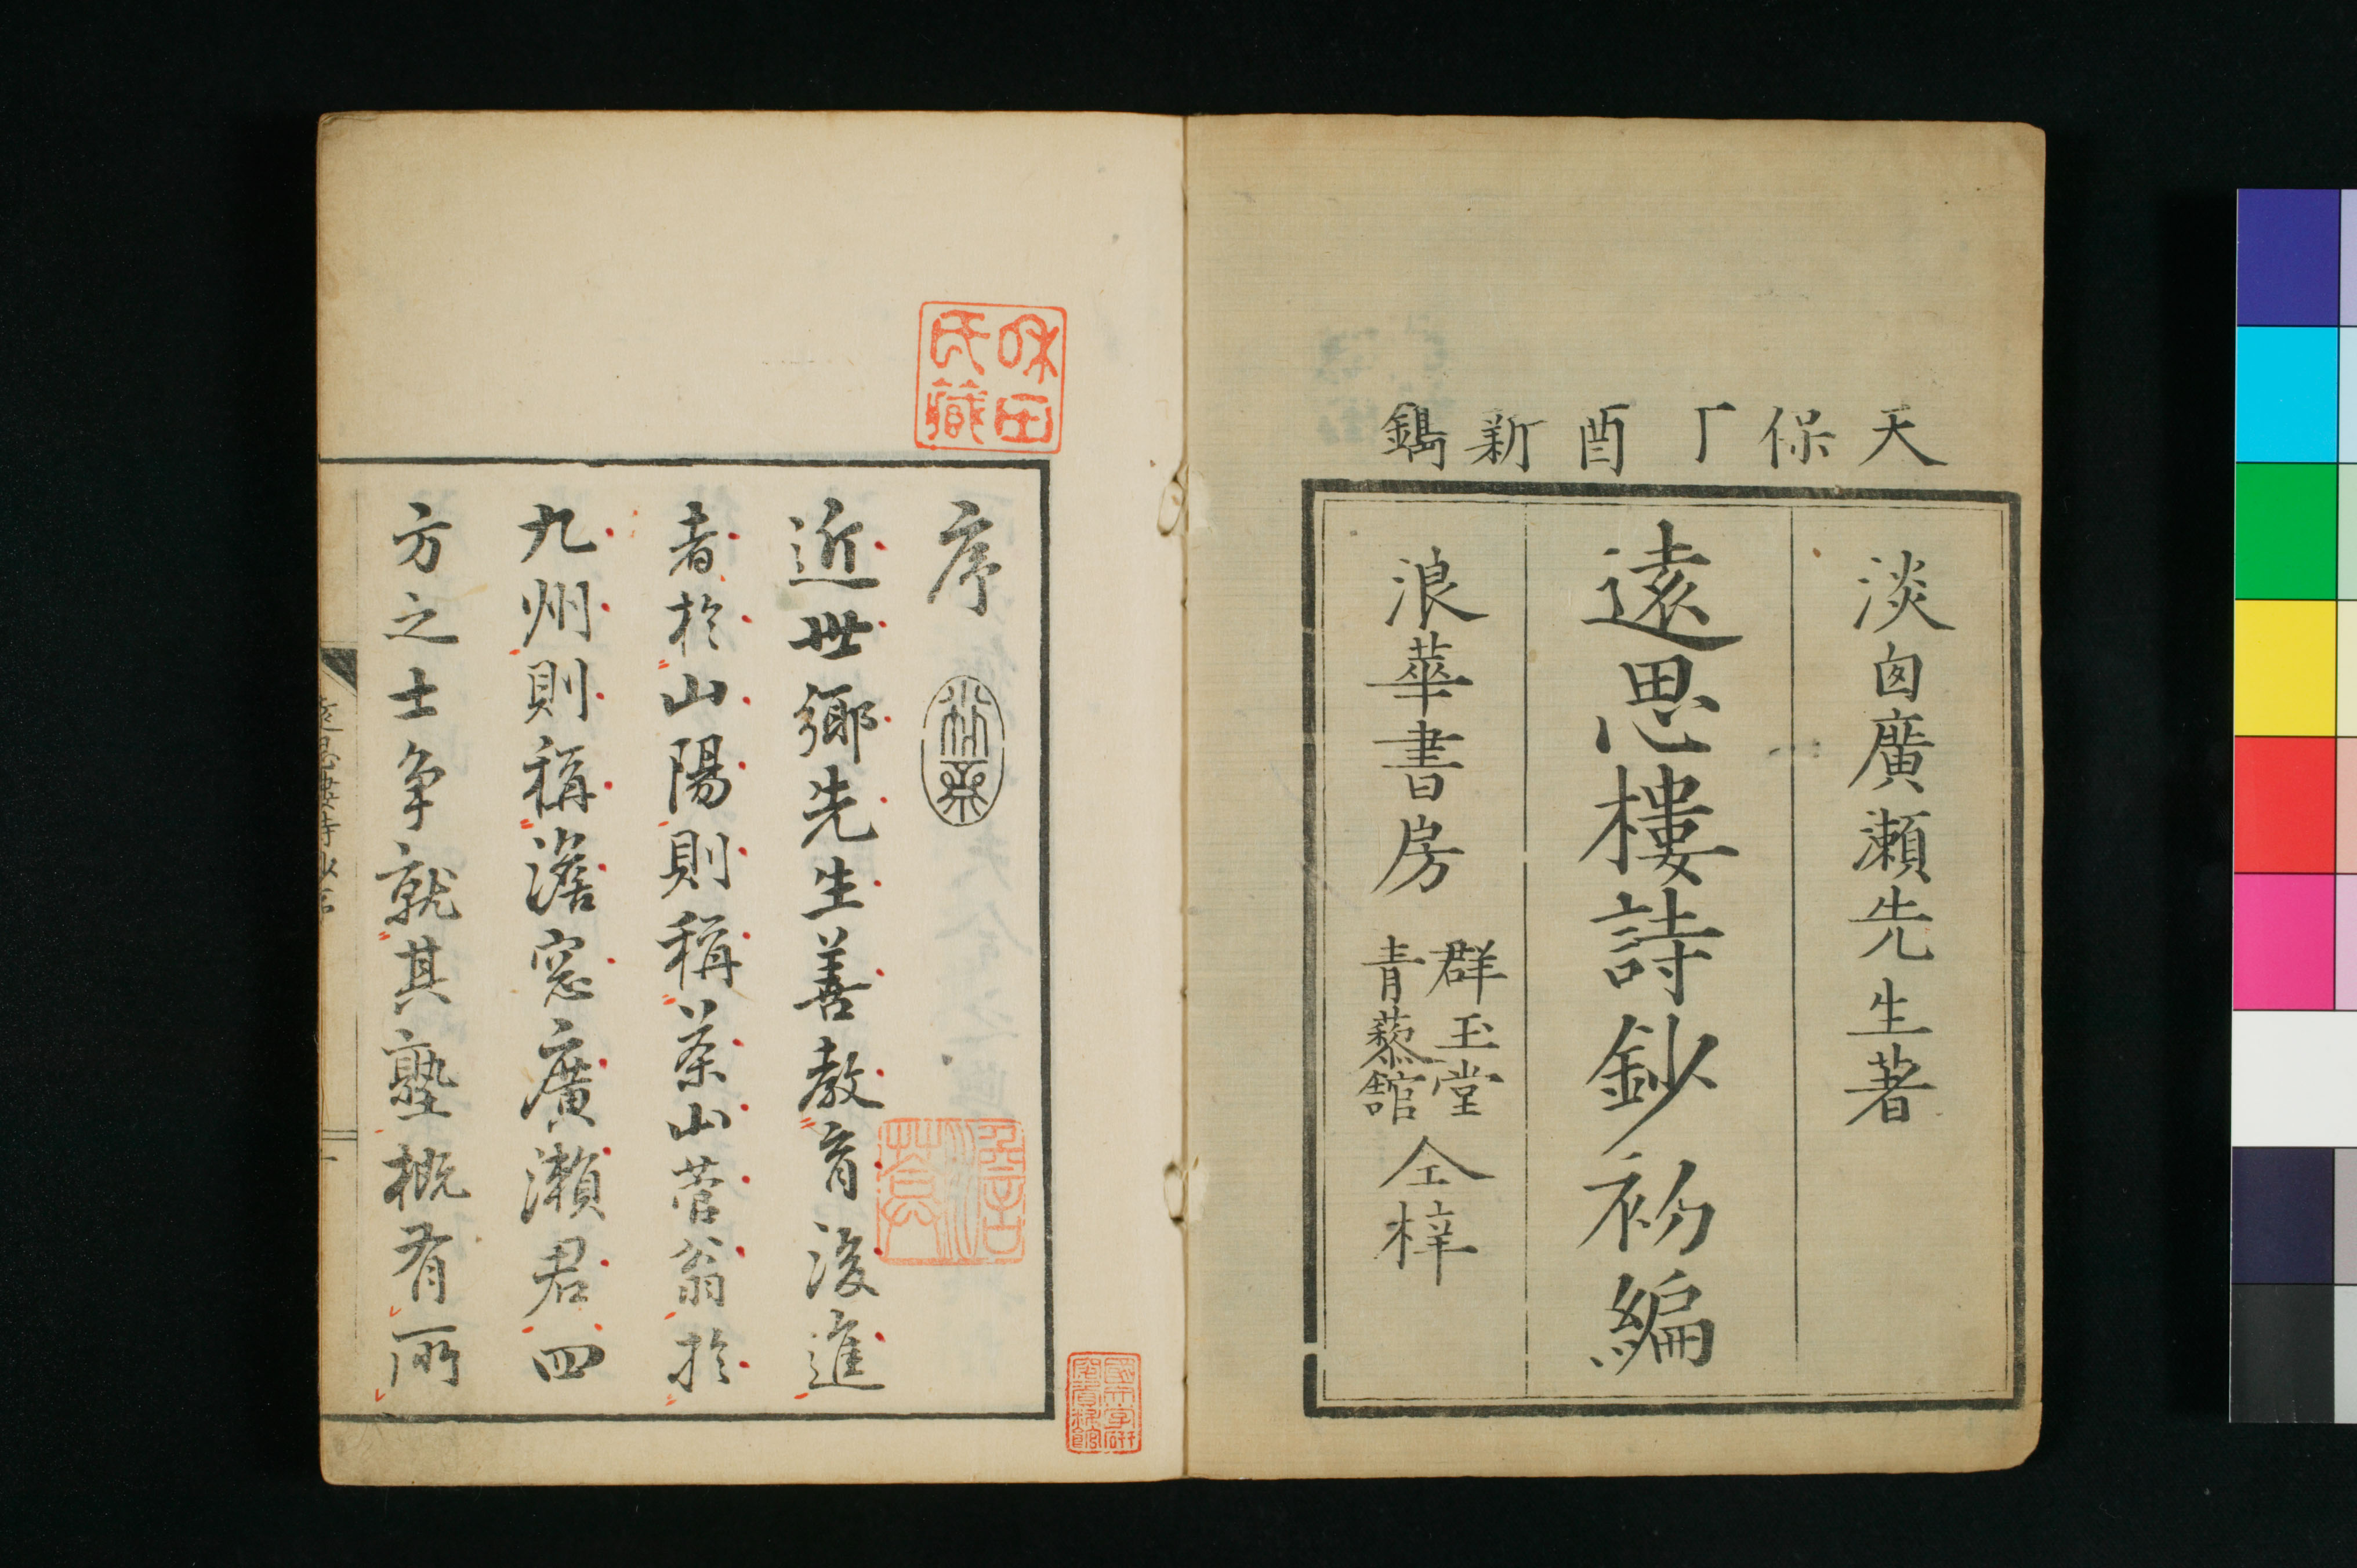 天保丁酉新鐫
淡囱廣瀬先生著
遠思樓詩鈔初編
浪華書房
群玉堂
青藜舘
仝梓
味田
氏藏
序
近世鄉先生善教育後進
者於山陽則稱茶山菅翁於
九州則稱澹窓廣瀨君四
方之士争就其塾概有所
遠思樓詩鈔序
一